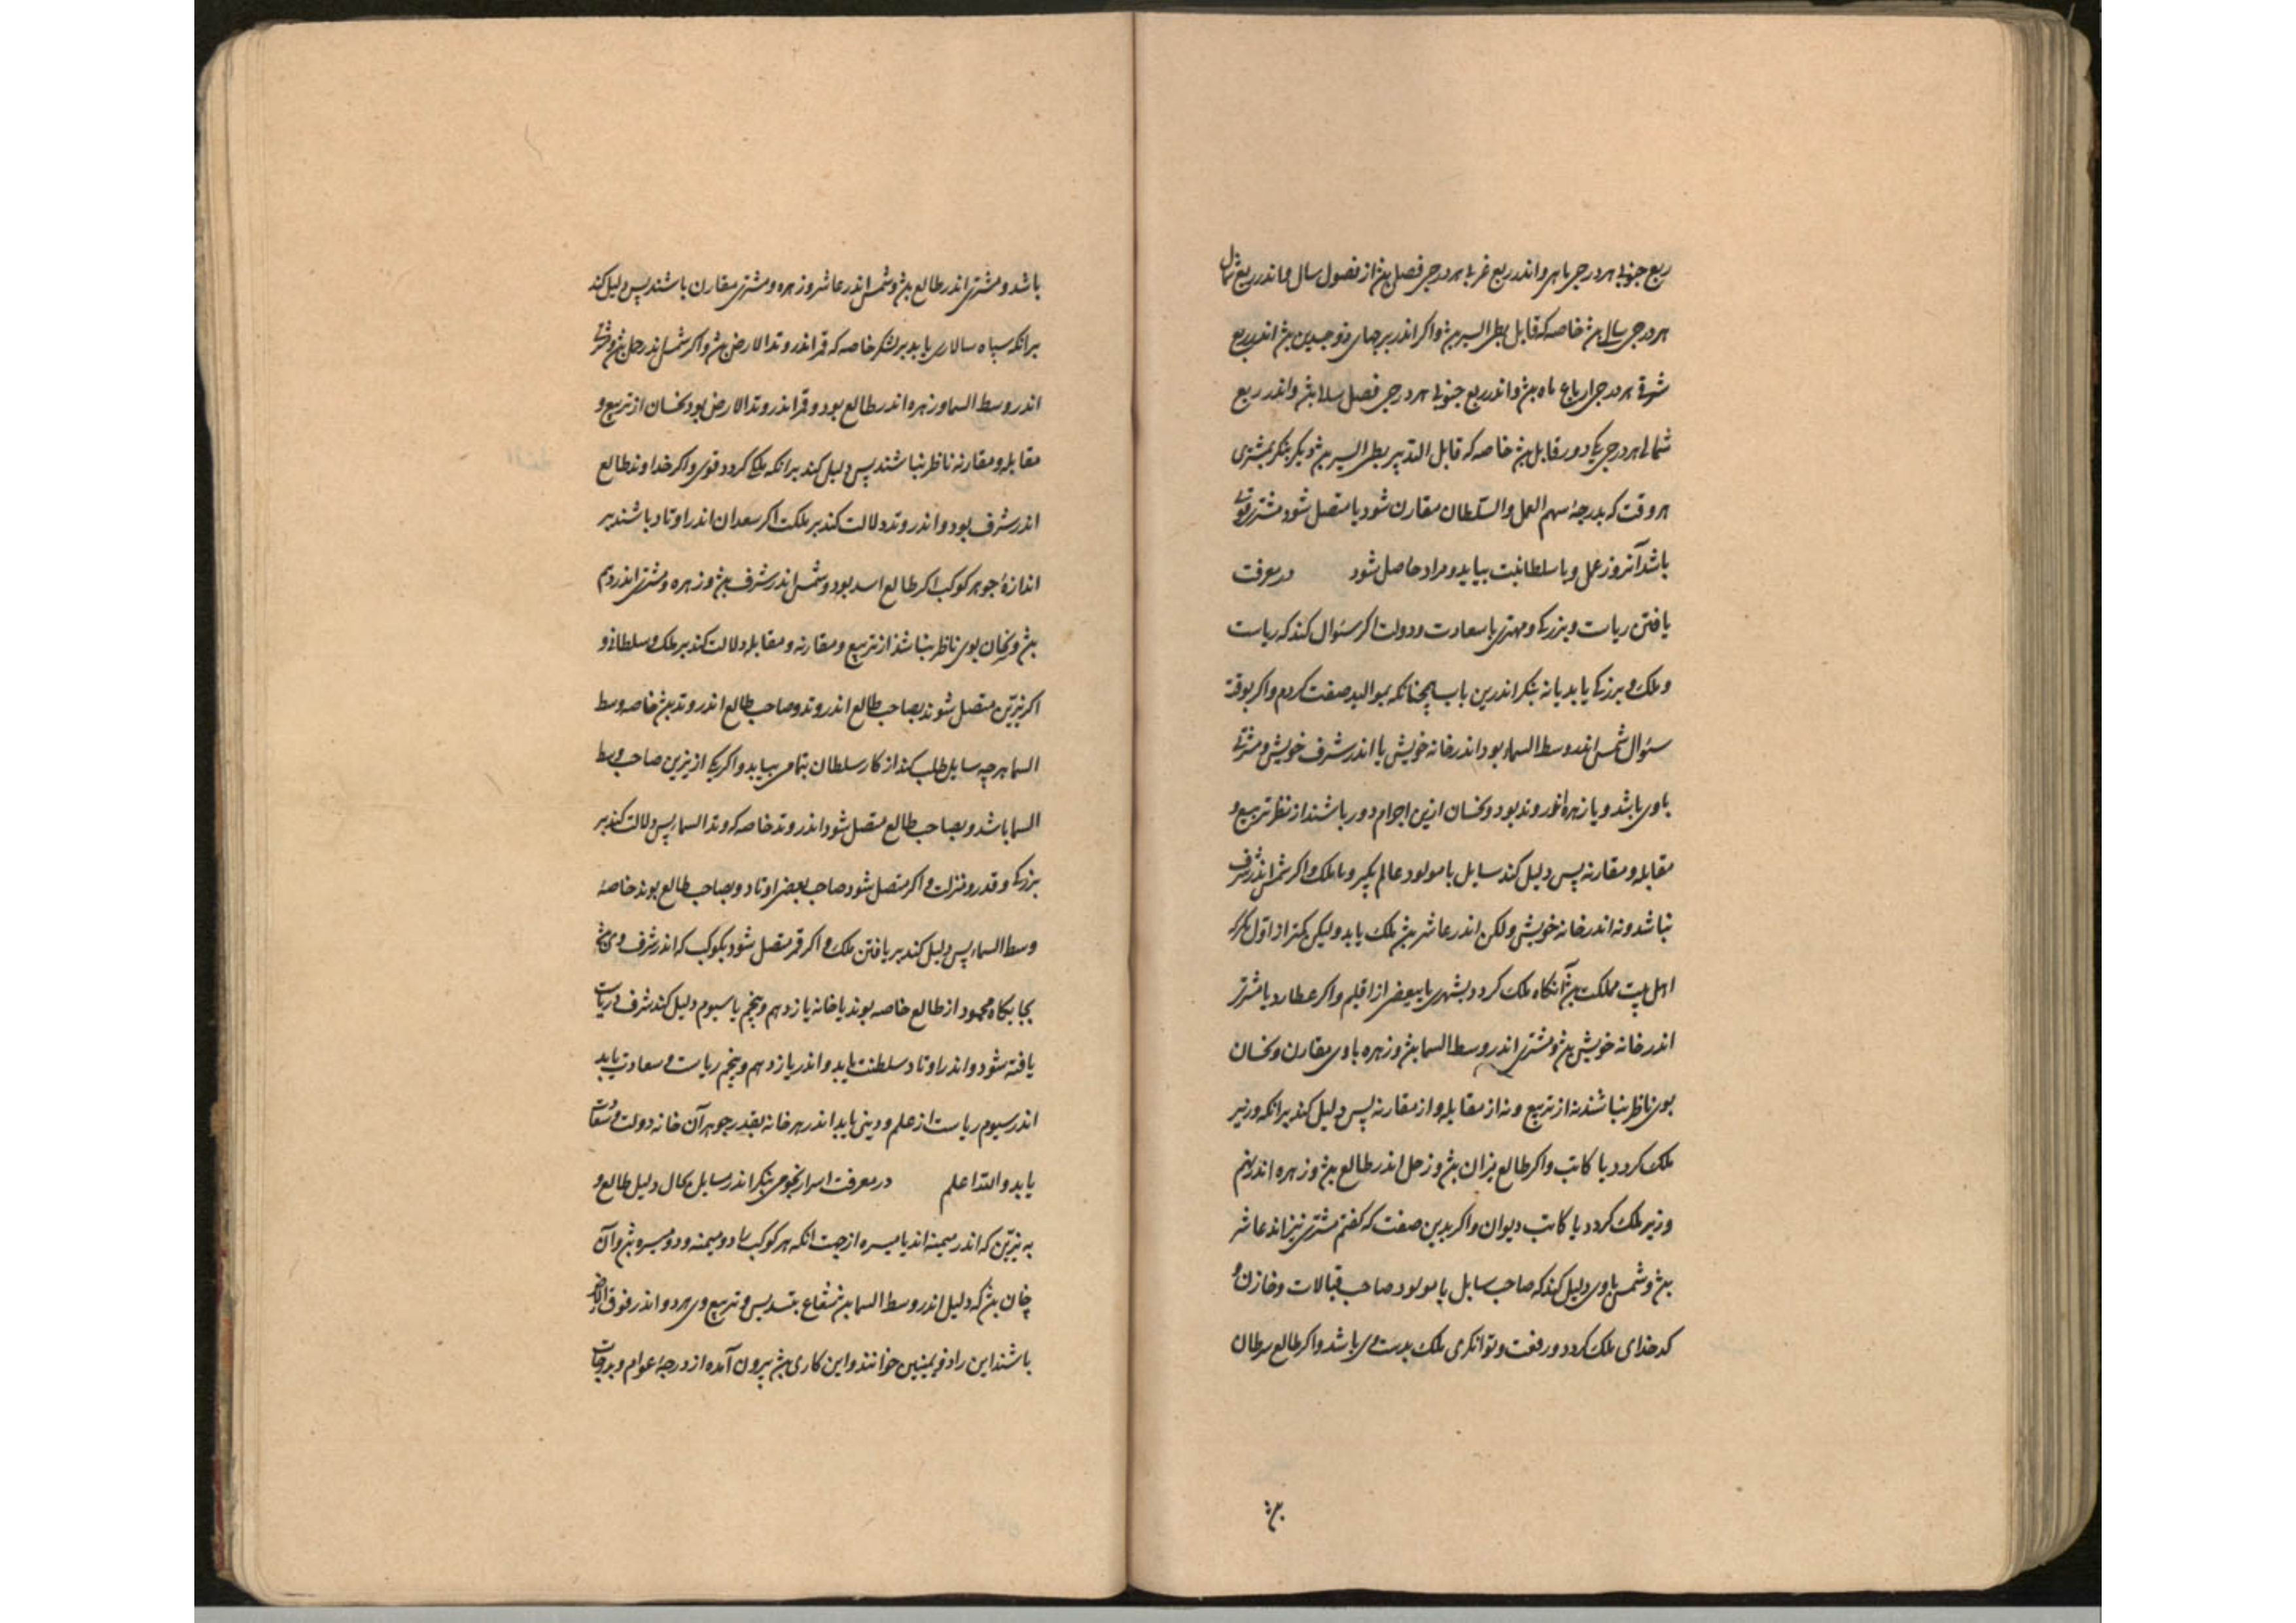 ربع جنوبی هر درجی ماهی واندر ربع غربی هر درجی فصل بشد از فصول سال واندر ربع شمال
هر درجی سال بشد خاصه که قابل بطی السیر بشد واکر اندر برجهای ذو جسدین بشد اندر ربع
شرقی هر درجی ارباع ماه بشد واندر ربع جنوبی هر درجی فصل سال بشد واندر ربع
شمالی هر درجی یکدور قابل بشد خاصه که قابل التدبیر بطی السیر بشد دیکر بنکر بمشتری
هر وقت که بدرجهٔ سهم العمل والسلطان مقارن شود یا متصل شود مشتری قوی
باشد آنروز عمل ویا سلطانیت بیابد ومراد حاصل شود در معرفت
یافتن ریاست وبزرکی ومهتری با سعادت ودولت اکر سئوال کند که ریاست
وملک وبزرکی یابد یا نه بنکر اندرین باب همچنانکه بموالید صفت کردم واکر بوقت
سئوال شمس اندر وسط السماء بود اندر خانه خویش یا اندر شرف خویش ومشتری
باوی باشد ویا زهره اندر وتد بود ونحسان ازین اجرام دور باشند از نظر تربیع و
مقابله ومقارنه پس دلیل کند سایل یا مولود عالم بکیرد با ملک واکر شمس اندر شرف
نباشد ونه اندر خانه خویش ولکن اندر عاشر بشد ملک یابد ولیکن کمتر از اول مکر که
اهل بیت مملکت بشد آنکاه ملک کردد بشهری یا ببعضی از اقلیم واکر عطارد یا مشتری
اندر خانه خویش بشد ومشتری اندر وسط السما بشد وزهره باوی مقارن ونحسان
بوی ناظر نباشند نه از تربیع ونه از مقابله واز مقارنه پس دلیل کند برانکه وزیر
ملک کردد یا کاتب واکر طالع میزان بشد وزحل اندر طالع بشد وزهره اندر نهم
وزیر ملک کردد یا کاتب دیوان واکر بدین صفت که کفتم مشتری نیز اندر عاشر
بشد وشمس باوی دلیل کند که صاحب سایل یا مولود صاحب قبالات وخازن و
کدخدای ملک کردد ورفعت وتوانکری ملک بدست وی باشد واکر طالع سرطان
باشد ومشتری اندر طالع بشد وشمس اندر عاشر وزهره ومشتری مقارن باشند پس دلیل کند
برانکه سپاه سالاری یابد بر لشکر خاصه که قمر اندر وتد الارض بشد واکر شمس اندر حمل بشد ومشتری
اندر وسط السما وزهره اندر طالع بود وقمر اندر وتد الارض بود ونحسان از تربیع و
مقابله ومقارنه ناظر نباشند پس دلیل کند برانکه ملکی کردد قوی واکر خداوند طالع
اندر شرف بود واندر وتد دلالت کند بر ملکت اکر سعدان اندر اوتاد باشند بر
اندازهٔ جوهر کوکب اکر طالع اسد بود وشمس اندر شرف بشد وزهره ومشتری اندر دهم
بشد ونحسان بوی ناظر نباشد از تربیع ومقارنه ومقابله دلالت کند بر ملک وسلطانی و
اکر نیرین متصل شوند بصاحب طالع اندر وتد وصاحب طالع اندر وتد بشد خاصه وسط
السما هر چه سایل طلب کند از کار سلطان بتمامی بیابد واکر یکی از نیرین صاحب وسط
السما باشد وبصاحب طالع متصل شود اندر وتد خاصه که وتد السماء پس دلالت کند بر
بزرکی وقدر ومنزلت واکر متصل شود صاحب بعضی اوتاد وبصاحب طالع بوند خاصه
وسط السماء پس دلیل کند بر یافتن ملک واکر قمر متصل شود بکوکب که اندر شرف وی بشد
بجایکاه محمود از طالع خاصه بوند یا خانه یازدهم وپنجم یا سیوم دلیل کند شرف وریاست
یافته شود واندر اوتاد سلطنت یابد واندر یازدهم وپنجم ریاست وسعادت یابد
اندر سیوم ریاست از علم ودینی یابد اندر هر خانه بقدر جوهر آن خانه دولت وسعادت
یابد والله اعلم در معرفت اسرار نجومی بنکر اندر سایل بحال دلیل طالع و
به نیرین که اندر میمنه اند یا میسره از جهت انکه هر کوکب را دو میمنه ودو میسره بشد وآن
چنان بشد که دلیل اندر وسط السما بشد شعاع بتسدیس وتربیع وی هر دو اندر فوق الارض
باشند این را ذو یمینین خوانند واین کاری بشد بیرون آمده از درجه عوام وبدرجات